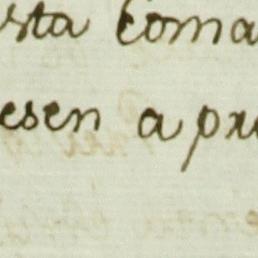 sta Coma
esen a pr